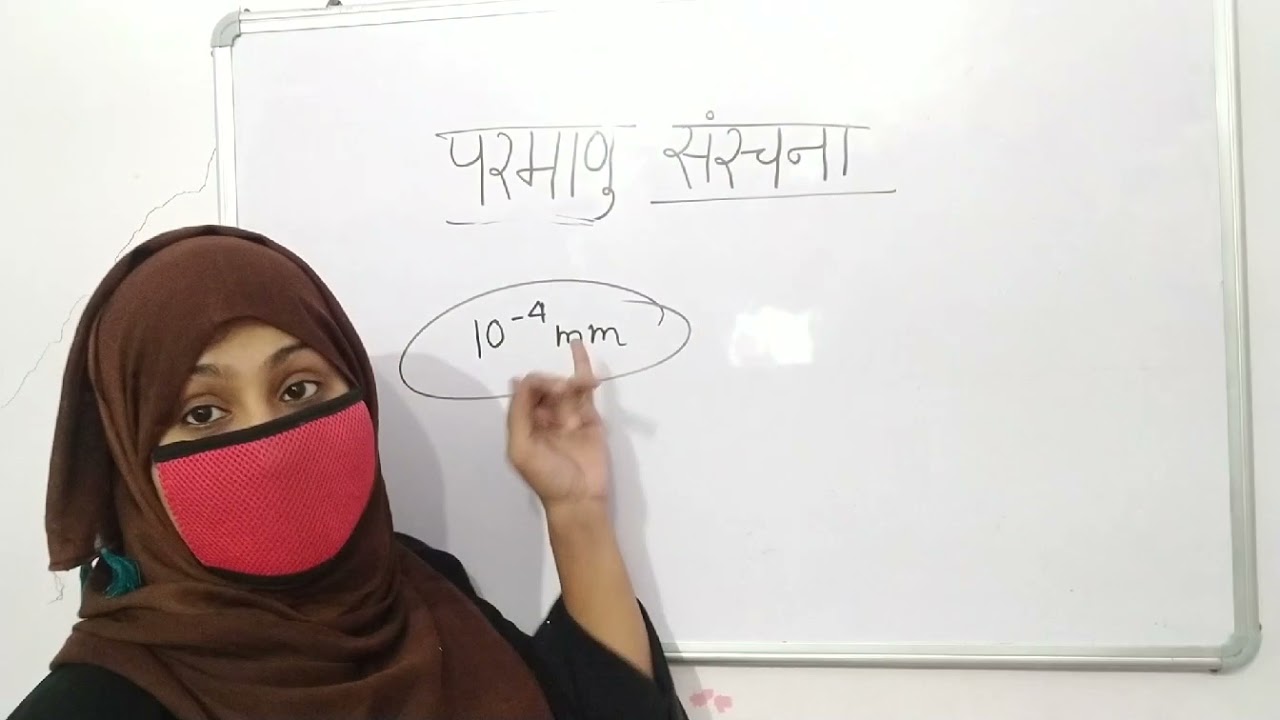 परमाणु संरचना
10⁻⁴ mm